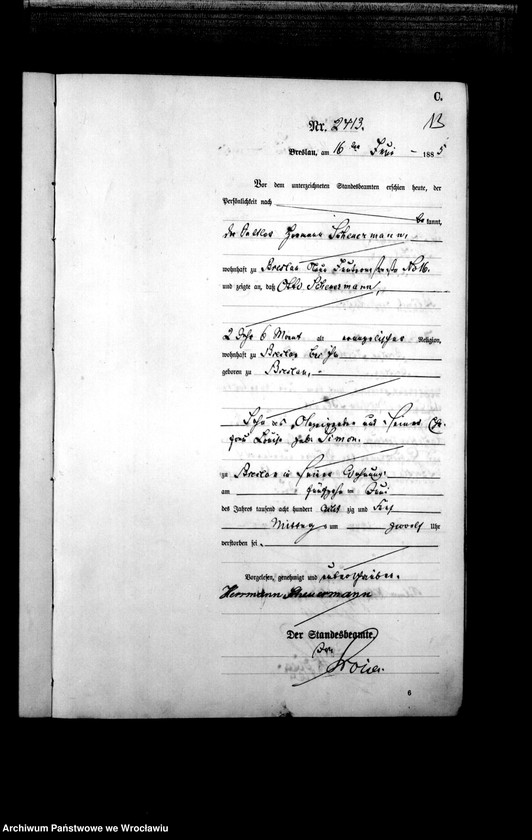 C.
13
Nr. 2413.
Breslau, am 16ten Juni 1885
Vor dem unterzeichneten Standesbeamten erschien heute, der
Persönlichkeit nach
be kannt,
der Hermann Scheuermann,
wohnhaft zu Breslau Neue No 16.
und zeigte an, daß Otto Scheuermann,
2 Jahr 6 Monat alt evangelischer Religion,
wohnhaft zu Breslau bei ihm
geboren zu Breslau,
Sohn des Anzeigenden und seiner Ehe-
frau Louise geb. Simon.
zu Breslau in seiner Wohnung
am Juni
des Jahres tausend acht hundert acht zig und fünf
Mittag um zwölf Uhr
verstorben sei.
Vorgelesen, genehmigt und unterschrieben.
Herrmann Scheuermann
Der Standesbeamte.
6
Archiwum Państwowe we Wrocławiu